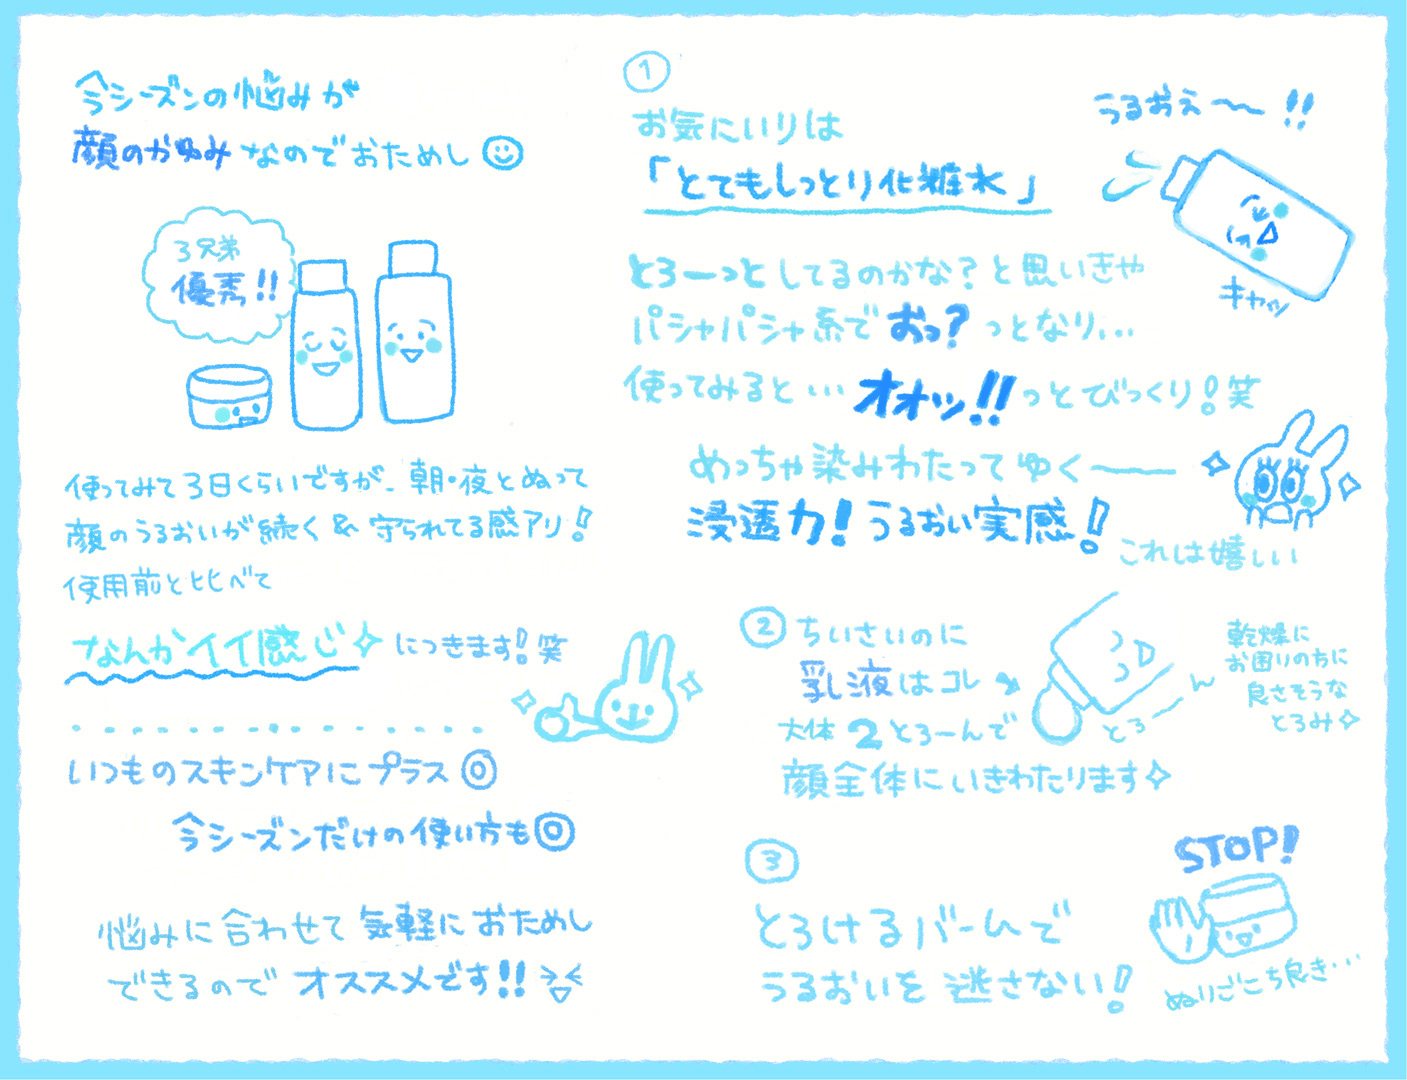 今シーズンの悩みが
顔のかゆみなのでおためし
3兄弟
優秀!!
使ってみて3日くらいですが、朝・夜とぬって
顔のうるおいが続く&守られてる感アリ!
使用前と比べて
なんかイイ感じにつきます!笑
いつものスキンケアにプラス◎
今シーズンだけの使い方も◎
悩みに合わせて気軽におためし
できるのでオススメです!!
①
お気にいりは
「とてもしっとり化粧水」
うるおえ〜〜!!
キャッ
とろーっとしてるのかな?と思いきや
パシャパシャ系でおっ?っとなり...
使ってみると…オオッ!!っとびっくり!笑
めっちゃ染みわたってゆく——
浸透力!うるおい実感!
これは嬉しい
②ちいさいのに
乳液はコレ
大体2とろーんで
顔全体にいきわたります
とろーん
乾燥に
お困りの方に
良さそうな
とろみ
③
とろけるバームで
うるおいを逃さない!
STOP!
ぬりごこち良き…